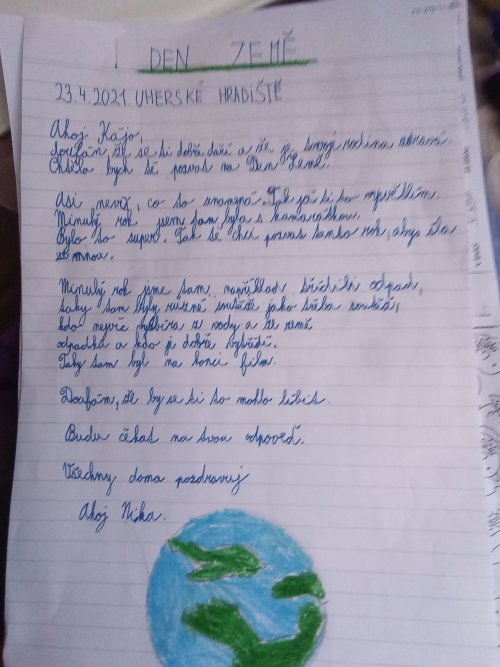 DEN ZEMĚ
23.4.2021. UHERSKÉ HRADIŠTĚ
Ahoj Kájo,
doufám, že se ti dobře daří a že je tvoje rodina zdravá.
Chtěla bych tě pozvat na Den Země.
Asi nevíš, co to znamená. Tak já ti to vysvětlím.
Minulý rok jsem tam byla s kamarátkou.
Bylo to super. Tak tě chci pozvat tento rok, aby šla
se mnou.
Minulý rok jsme tam například třídili odpad,
taky tam byly ruzné soutěže jako třeba soutěž,
kdo nejvíc vysbírá z vody a ze země
odpadků a kdo je dobře vytřídí.
Taky tam byl na konci film.
Doufám, že by se ti to mohlo líbit.
Budu čekat na tvou odpověď.
Všechny doma pozdravuj
Ahoj Nika.